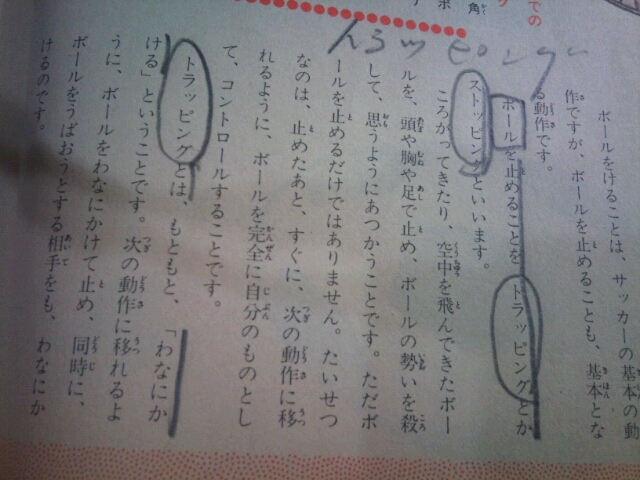 ボールをけることは、サッカーの基本の動
作ですが、ボールを止めることも、基本とな
る動作です。
ボールを止めることを、トラッピングとか
ストッピングといいます。
ころがってきたり、空中を飛んできたボー
ルを、頭や胸や足で止め、ボールの勢いを殺
して、思うようにあつかうことです。ただボ
ールを止めるだけではありません。たいせつ
なのは、止めたあと、すぐに、次の動作に移
れるように、ボールを完全に自分のものとし
て、コントロールすることです。
トラッピングとは、もともと、「わなにか
ける」ということです。次の動作に移れるよ
うに、ボールをわなにかけて止め、同時に、
ボールをうばおうとする相手をも、わなにか
けるのです。